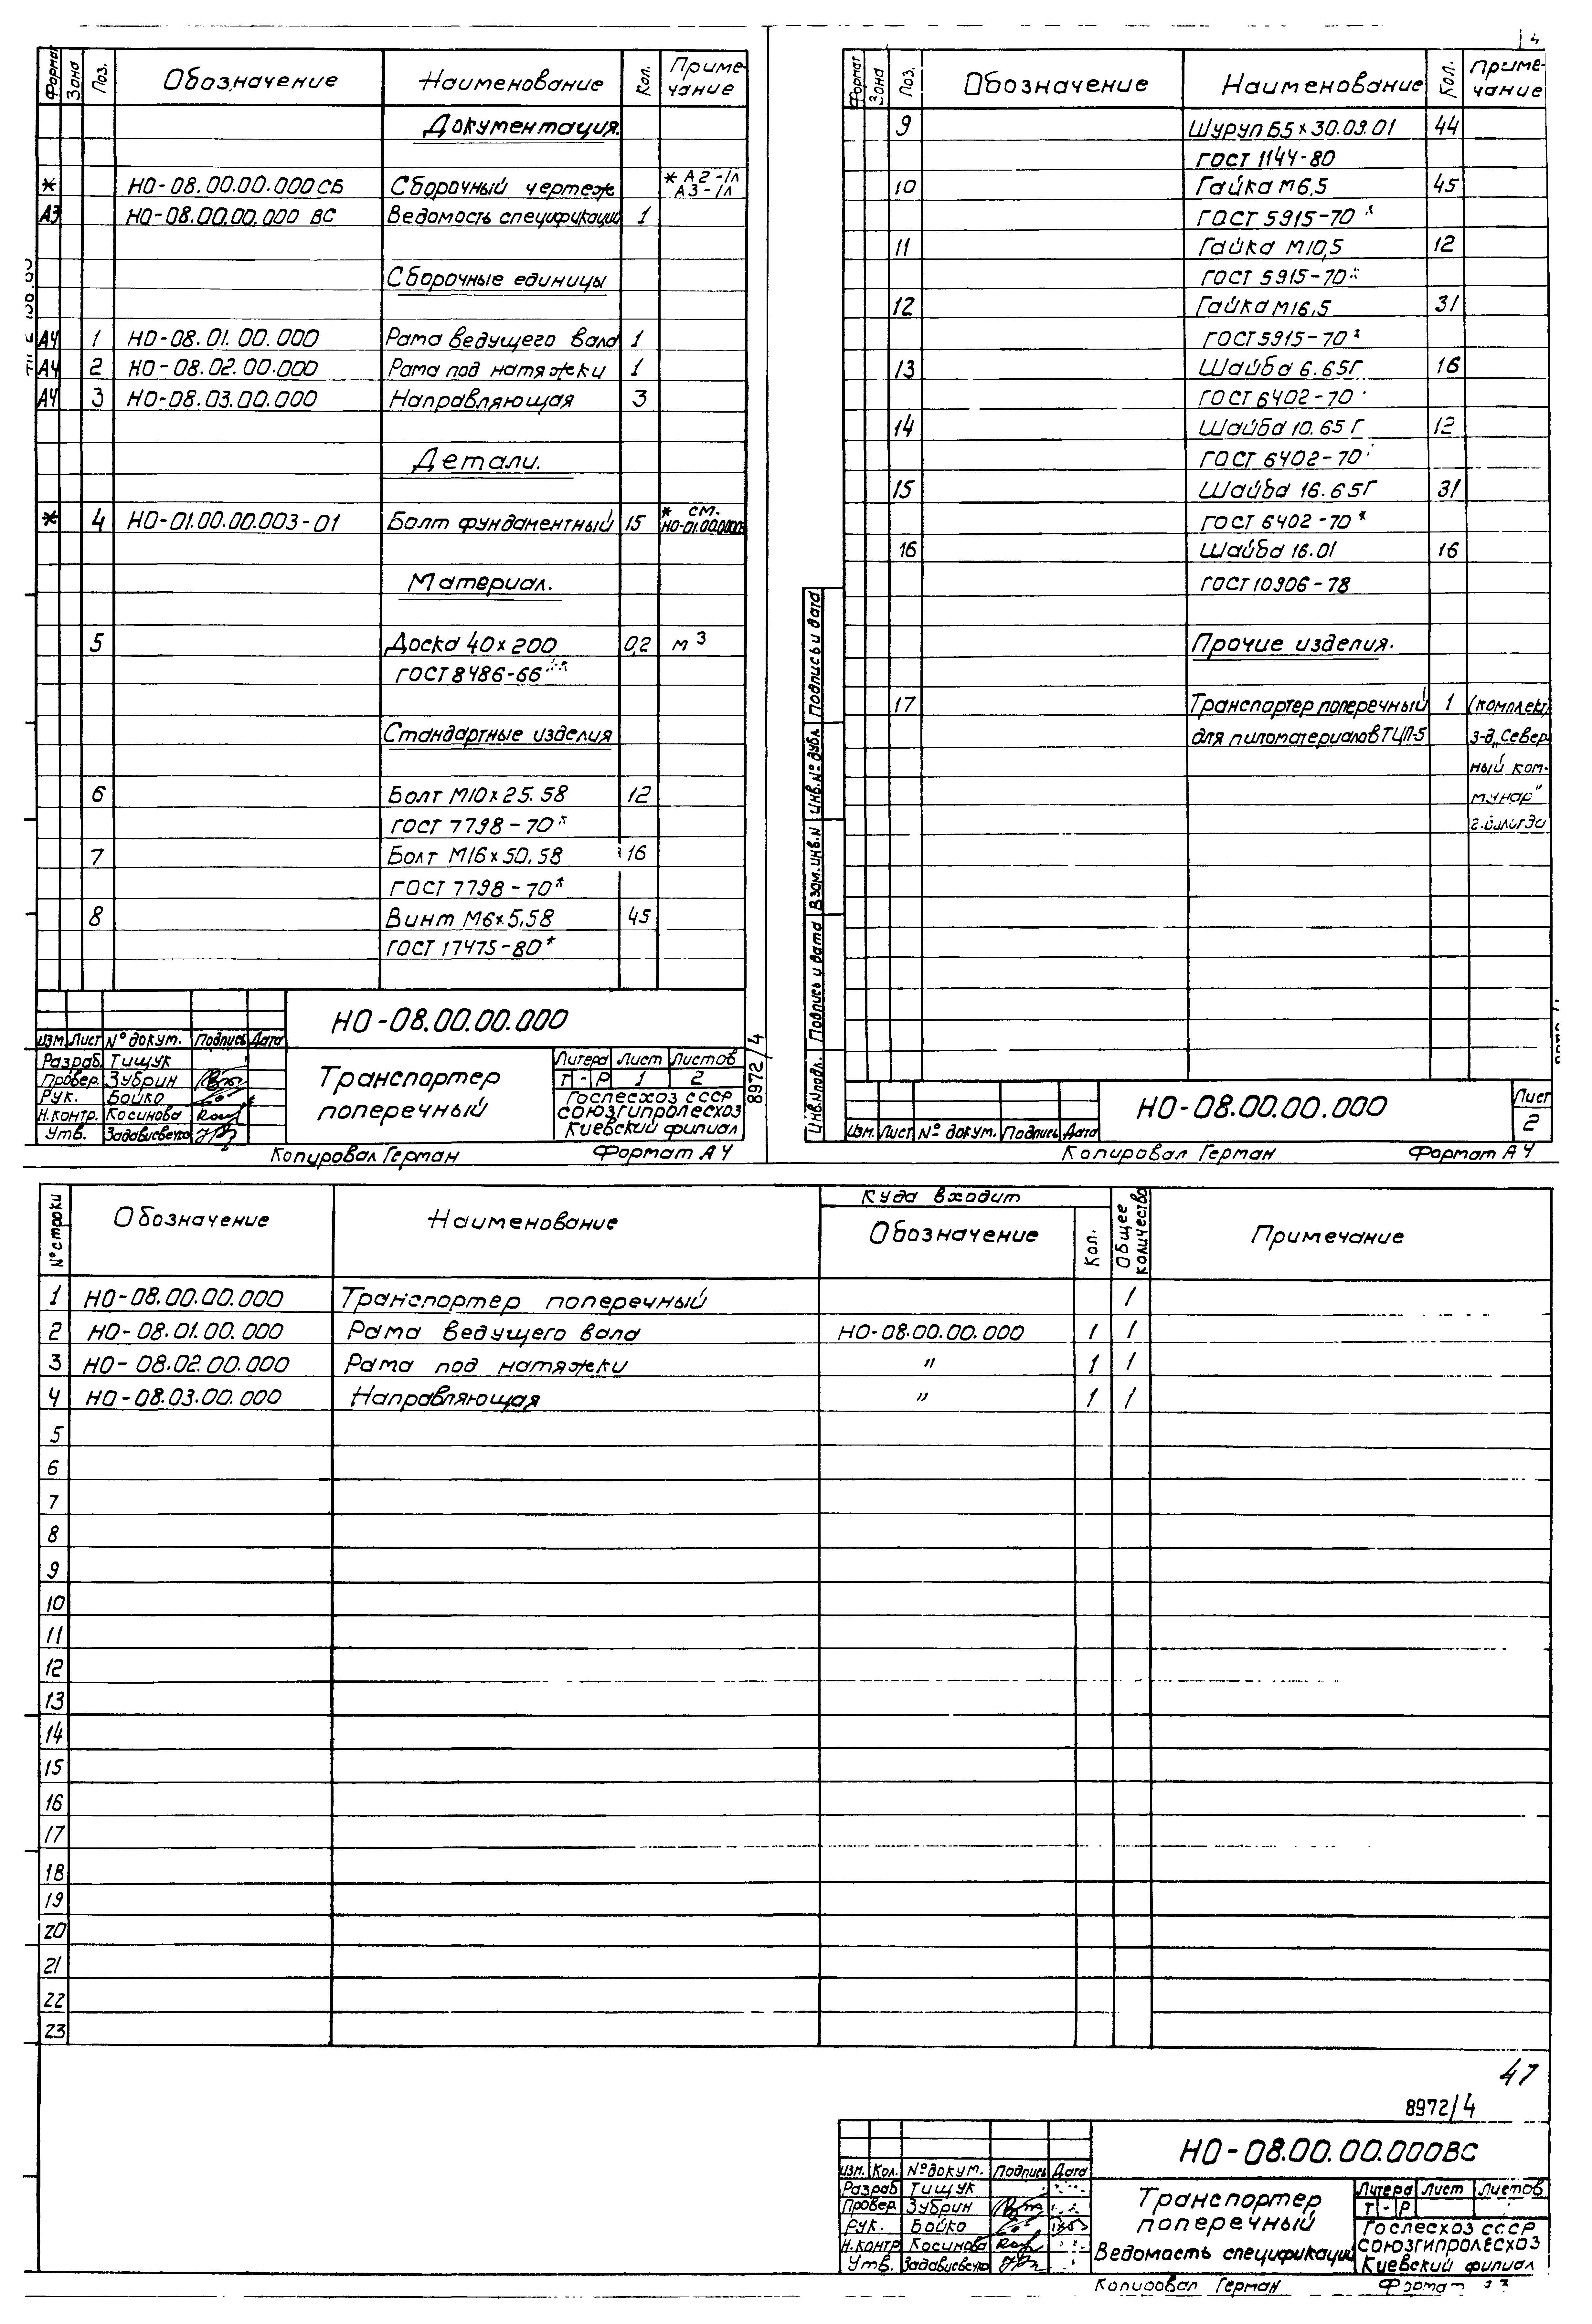 Формат Зона Поз. Обозначение Наименование Кол. Приме-чание
Документация.
* НО-08.00.00.000СБ Сборочный чертеж * А2-1л А3-1л
А3 НО-08.00.00.000 ВС Ведомость спецификаций 1
Сборочные единицы
А4 1 НО-08.01.00.000 Рама ведущего вала 1
А4 2 НО-08.02.00.000 Рама под натяжеки 1
А4 3 НО-08.03.00.000 Направляющая 3
Детали.
* 4 НО-01.00.00.003-01 Болт фундаментный 15 * см. НО-01.00.00.003
Материал.
5 Доска 40х200 0,2 м3
ГОСТ 8486-66**
Стандартные изделия
6 Болт М10х25.58 12
ГОСТ 7798-70*
7 Болт М16х50.58 16
ГОСТ 7798-70*
8 Винт М6х5,58 45
ГОСТ 17475-80*
НО-08.00.00.000
Изм. Лист №докум. Подпись Дата
Разраб. Тищук
Провер. Зубрин
Рук. Бойко
Н.контр. Косинова
Утв.
Транспортер
поперечный
Литера Лист Листов
Т - Р 1 2
Гослесхоз СССР
Союзгипролесхоз
Киевский филиал
8972/4
Копировал Герман Формат А4
4
Формат Зона Поз. Обозначение Наименование Кол. Приме-чание
9 Шуруп Б5х30.09.01 44
ГОСТ 1144-80
10 Гайка М6,5 45
ГОСТ 5915-70*
11 Гайка М10,5 12
ГОСТ 5915-70*
12 Гайка М16,5 31
ГОСТ 5915-70*
13 Шайба 6.65Г 16
ГОСТ 6402-70*
14 Шайба 10.65Г 12
ГОСТ 6402-70*
15 Шайба 16.65Г 31
ГОСТ 6402-70*
16 Шайба 16.01 16
ГОСТ 10906-78
Прочие изделия.
17 Транспортер поперечный 1 (комплект)
для пиломатериалов ТЦП-5 з-д „Север-
ный ком-
мунар"
г.Вологда
Инв.№подл. Подпись и дата Взам.инв.№ Инв.№ дубл. Подпись и дата
Изм. Лист № докум. Подпись Дата
НО-08.00.00.000
Лист
2
Копировал Герман Формат А4
№ строки Обозначение Наименование Куда входит Обозначение Кол. Общее количество Примечание
1 НО-08.00.00.000 Транспортер поперечный 1
2 НО-08.01.00.000 Рама ведущего вала НО-08.00.00.000 1 1
3 НО-08.02.00.000 Рама под натяжеки " 1 1
4 НО-08.03.00.000 Направляющая " 1 1
5
6
7
8
9
10
11
12
13
14
15
16
17
18
19
20
21
22
23
47
8972/4
НО-08.00.00.000ВС
Изм. Кол. №докум. Подпись Дата
Разраб Тищук
Провер. Зубрин
Рук. Бойко
Н.контр Косинова
Утв.
Транспортер
поперечный
Ведомость спецификаций
Литера Лист Листов
Т - Р
Гослесхоз СССР
Союзгипролесхоз
Киевский филиал
Копировал Герман Формат